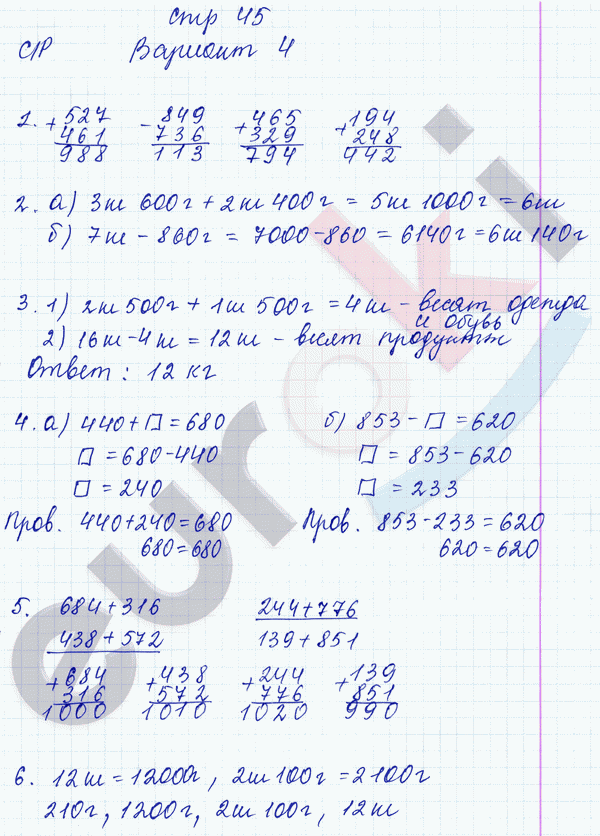 стр 45
С/Р Вариант 4
1. + 527 - 849 + 465 + 194
461 736 329 248
988 113 794 442
2. а) 3кг 600г + 2кг 400г = 5кг 1000г = 6кг
б) 7кг - 860г = 7000-860 = 6140г = 6кг 140г
3. 1) 2кг 500г + 1кг 500г = 4кг - весят одежда
и обувь
2) 16кг-4кг = 12кг - весят продукты
Ответ: 12 кг
4. а) 440+□=680 б) 853-□=620
□ = 680-440 □ = 853-620
□ = 240 □ = 233
Пров. 440+240=680 Пров. 853-233=620
680=680 620=620
5. 684+316 244+776
438+572 139+851
+ 684 + 438 + 244 + 139
316 572 776 851
1000 1010 1020 990
6. 12кг = 12000г, 2кг 100г = 2100г
210г, 1200г, 2кг 100г, 12кг
euroki